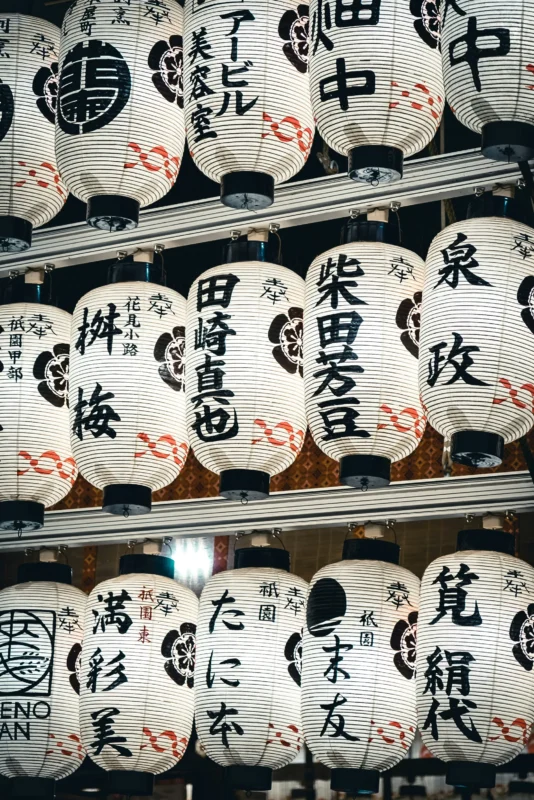 奉
アービル
美容室
畑中
中
奉
祇園甲部
奉
花見小路
桝梅
奉
田崎真也
奉
柴田芳豆
奉
泉政
奉
ENO
AN
奉
祇園東
満彩美
奉
祇園
たに本
奉
祇園
末友
奉
筧絹代